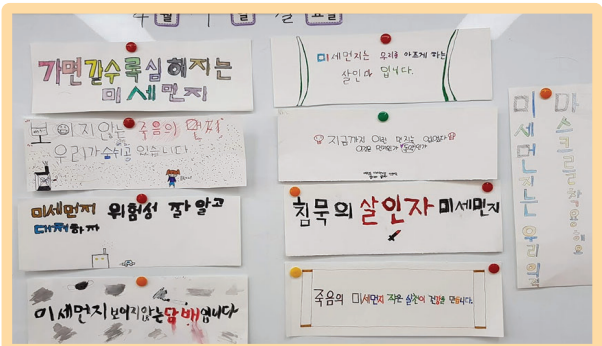 월 일 요일
가면갈수록심해지는
미세먼지
보이지않는 죽음의 먼지
우리가 숨쉬고 있습니다
미세먼지 위험성 잘 알고
대처하자
미세먼지 보이지않는 담배입니다
미세먼지는 우리를 아프게 하는
살인마 입니다.
지금까지 이런 먼지는 없었다
침묵의 살인자 미세먼지
죽음의 미세먼지 작은 실천이 건강을 만듭니다.
마스크를착용해요
미세먼지는 우리의